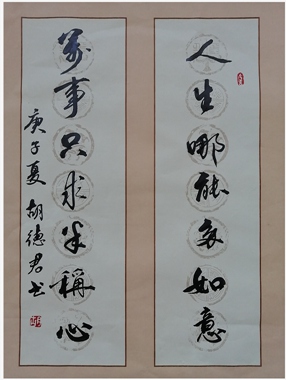 人生哪能多如意
萬事只求半稱心
庚子夏 胡德君书